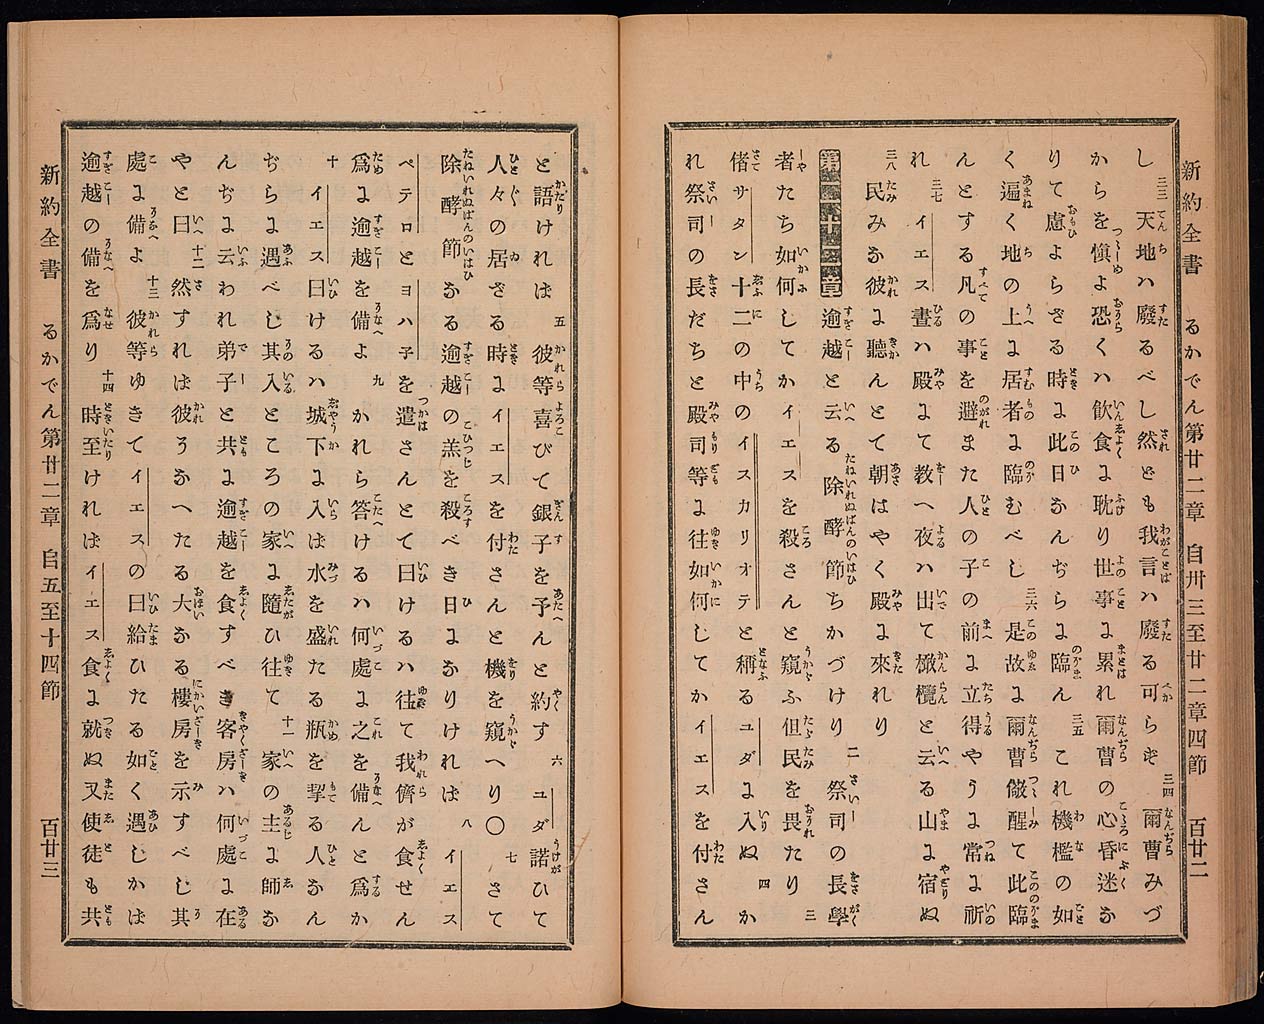 新約全書　るかでん第廿二章　自卅三至廿二章四節　百廿二
し 三三 天地ハ廢るべし然ども我言ハ廢る可らず 三四 爾曹みづ
からを愼よ恐くハ飮食よ耽り世事よ累れ爾曹の心昏迷な
りて慮よらざる時よ此日なんぢらよ臨ん 三五 これ機檻の如
く遍く地の上よ居者よ臨むべし 三六 是故よ爾曹儆醒て此臨
んとする凡の事を避また人の子の前よ立得やうよ常よ祈
れ 三七 イエス晝ハ殿よて教へ夜ハ出て橄欖と云る山よ宿ぬ
三八 民みな彼よ聽んとて朝はやく殿よ來れり
第廿二章 逾越と云る除酵節ちかづけり 二 祭司の長學
者たち如何してかイエスを殺さんと窺ふ但民を畏たり 三
偖サタン十二の中のイスカリオテと稱るユダよ入ぬ 四 か
れ祭司の長だちと殿司等よ往如何してかイエスを付さん
と語ければ 五 彼等喜びて銀子を予んと約す 六 ユダ諾ひて
人々の居ざる時よイエスを付さんと機を窺へり〇 七 さて
除酵節なる逾越の羔を殺べき日よなりければ 八 イエス
ペテロとヨハ子を遣さんとて曰けるハ往て我儕が食せん
爲よ逾越を備よ 九 かれら答けるハ何處よ之を備んと爲か
十 イエス曰けるハ城下よ入ば水を盛たる瓶を挈る人なん
ぢらよ遇べし其入ところの家よ隨ひ往て 十一 家の主よ師な
んぢよ云われ弟子と共よ逾越を食すべき客房ハ何處よ在
やと曰 十二 然すれば彼そなへたる大なる樓房を示すべし其
處よ備よ 十三 彼等ゆきてイエスの曰給ひたる如く遇しかば
逾越の備を爲り 十四 時至ければイエス食よ就ぬ又使徒も共
新約全書　るかでん第廿二章　自五至十四節　百廿三